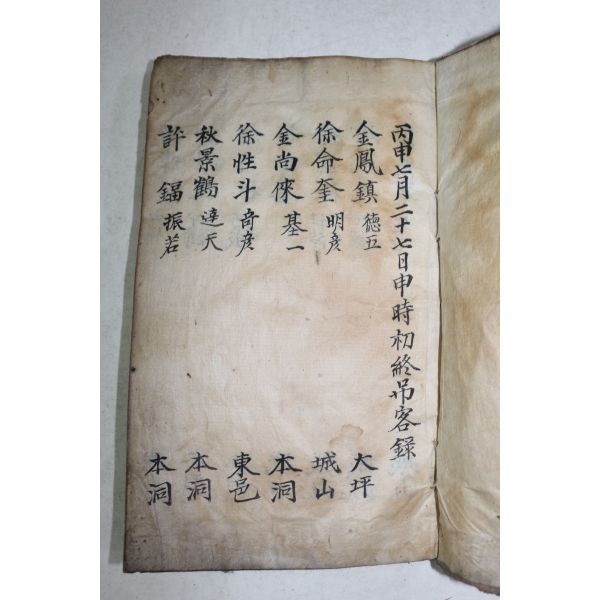 丙申七月二十七日申時初終吊客錄
金鳳鎮 德五 大坪
徐命奎 明彦 城山
金尚俅 基一 本洞
徐性斗 奇彦 東邑
秋景鶴 達天 本洞
許鍢 振若 本洞